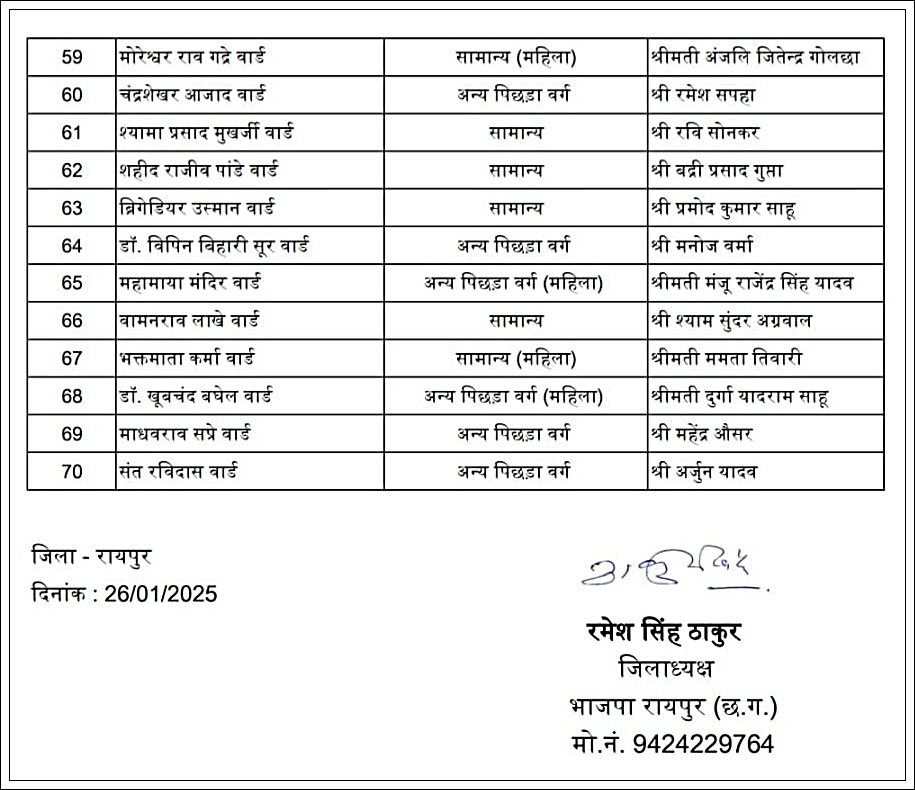 59 मोरेश्वर राव गद्रे वार्ड सामान्य (महिला) श्रीमती अंजलि जितेन्द्र गोलछा
60 चंद्रशेखर आजाद वार्ड अन्य पिछड़ा वर्ग श्री रमेश सपहा
61 श्यामा प्रसाद मुखर्जी वार्ड सामान्य श्री रवि सोनकर
62 शहीद राजीव पांडे वार्ड सामान्य श्री बद्री प्रसाद गुप्ता
63 ब्रिगेडियर उस्मान वार्ड सामान्य श्री प्रमोद कुमार साहू
64 डॉ. विपिन बिहारी सूर वार्ड अन्य पिछड़ा वर्ग श्री मनोज वर्मा
65 महामाया मंदिर वार्ड अन्य पिछड़ा वर्ग (महिला) श्रीमती मंजू राजेंद्र सिंह यादव
66 वामनराव लाखे वार्ड सामान्य श्री श्याम सुंदर अग्रवाल
67 भक्तमाता कर्मा वार्ड सामान्य (महिला) श्रीमती ममता तिवारी
68 डॉ. खूबचंद बघेल वार्ड अन्य पिछड़ा वर्ग (महिला) श्रीमती दुर्गा यादराम साहू
69 माधवराव सप्रे वार्ड अन्य पिछड़ा वर्ग श्री महेंद्र औसर
70 संत रविदास वार्ड अन्य पिछड़ा वर्ग श्री अर्जुन यादव
जिला - रायपुर
दिनांक : 26/01/2025
रमेश सिंह ठाकुर
जिलाध्यक्ष
भाजपा रायपुर (छ.ग.)
मो.नं. 9424229764